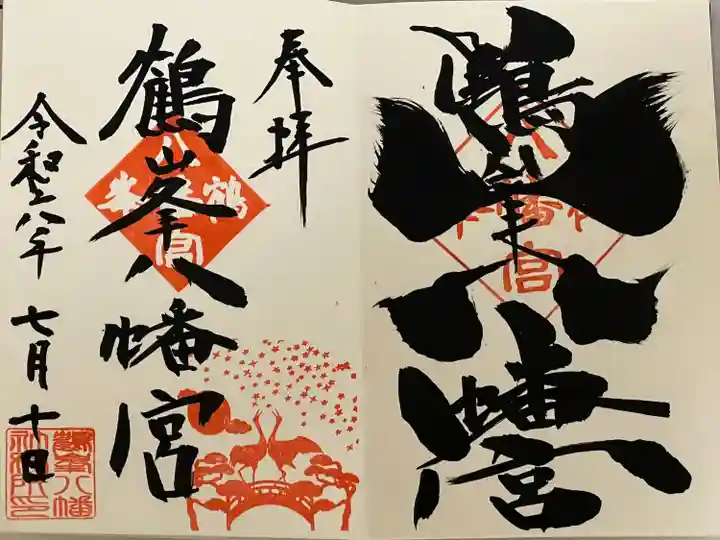 鶴峯八幡宮
奉拝
鶴峯八幡宮
令和六年七月十日